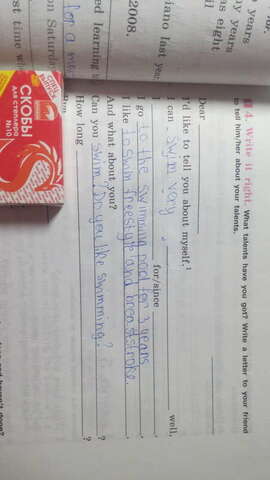 years
y years
as eight
il
iano last year
2008.
ed learning to
on Saturday
for a
st time w
СКОБЫ
ДЛЯ СТЕПЛЕРА
№10
4. Write it right. What talents have you got? Write a letter to your friend
to tell him/her about your talents.
Dear
I'd like to tell you about myself.
I can swim very well,
I for/since
I go to the swimming pool for 3 years.
I like to swim freestyle and breaststroke.
And what about you?
Can you swim? Do you like swimming? ?
How long ?